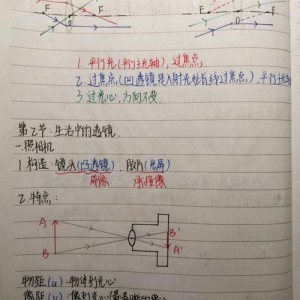 F O F F O F
1. 平行光(平行主光轴),过焦点
2. 过焦点(凹透镜是入射光延长线过焦点),平行主
3. 过光心,方向不变
第2节:生活中的透镜
一.照相机
1.构造:镜头(凸透镜),胶片(光屏)
成像 承接像
2.特点:
A B' B A'
物距(u):物体到光心
像距(v):像到光心